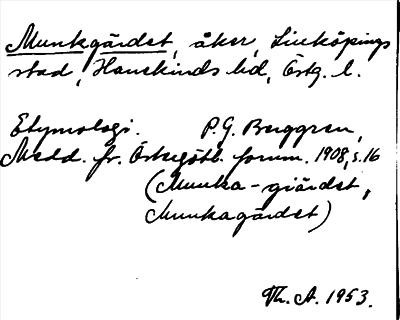 Munkgärdet, åker, Linköpings
stad, Hanekinds hd, Östg. l.
Etymologi. P.G. Berggren,
Medd. fr. Östergötl. fornm. 1908, s. 16
(Munka-giärdet,
Munkagärdet)
Th. A. 1953.